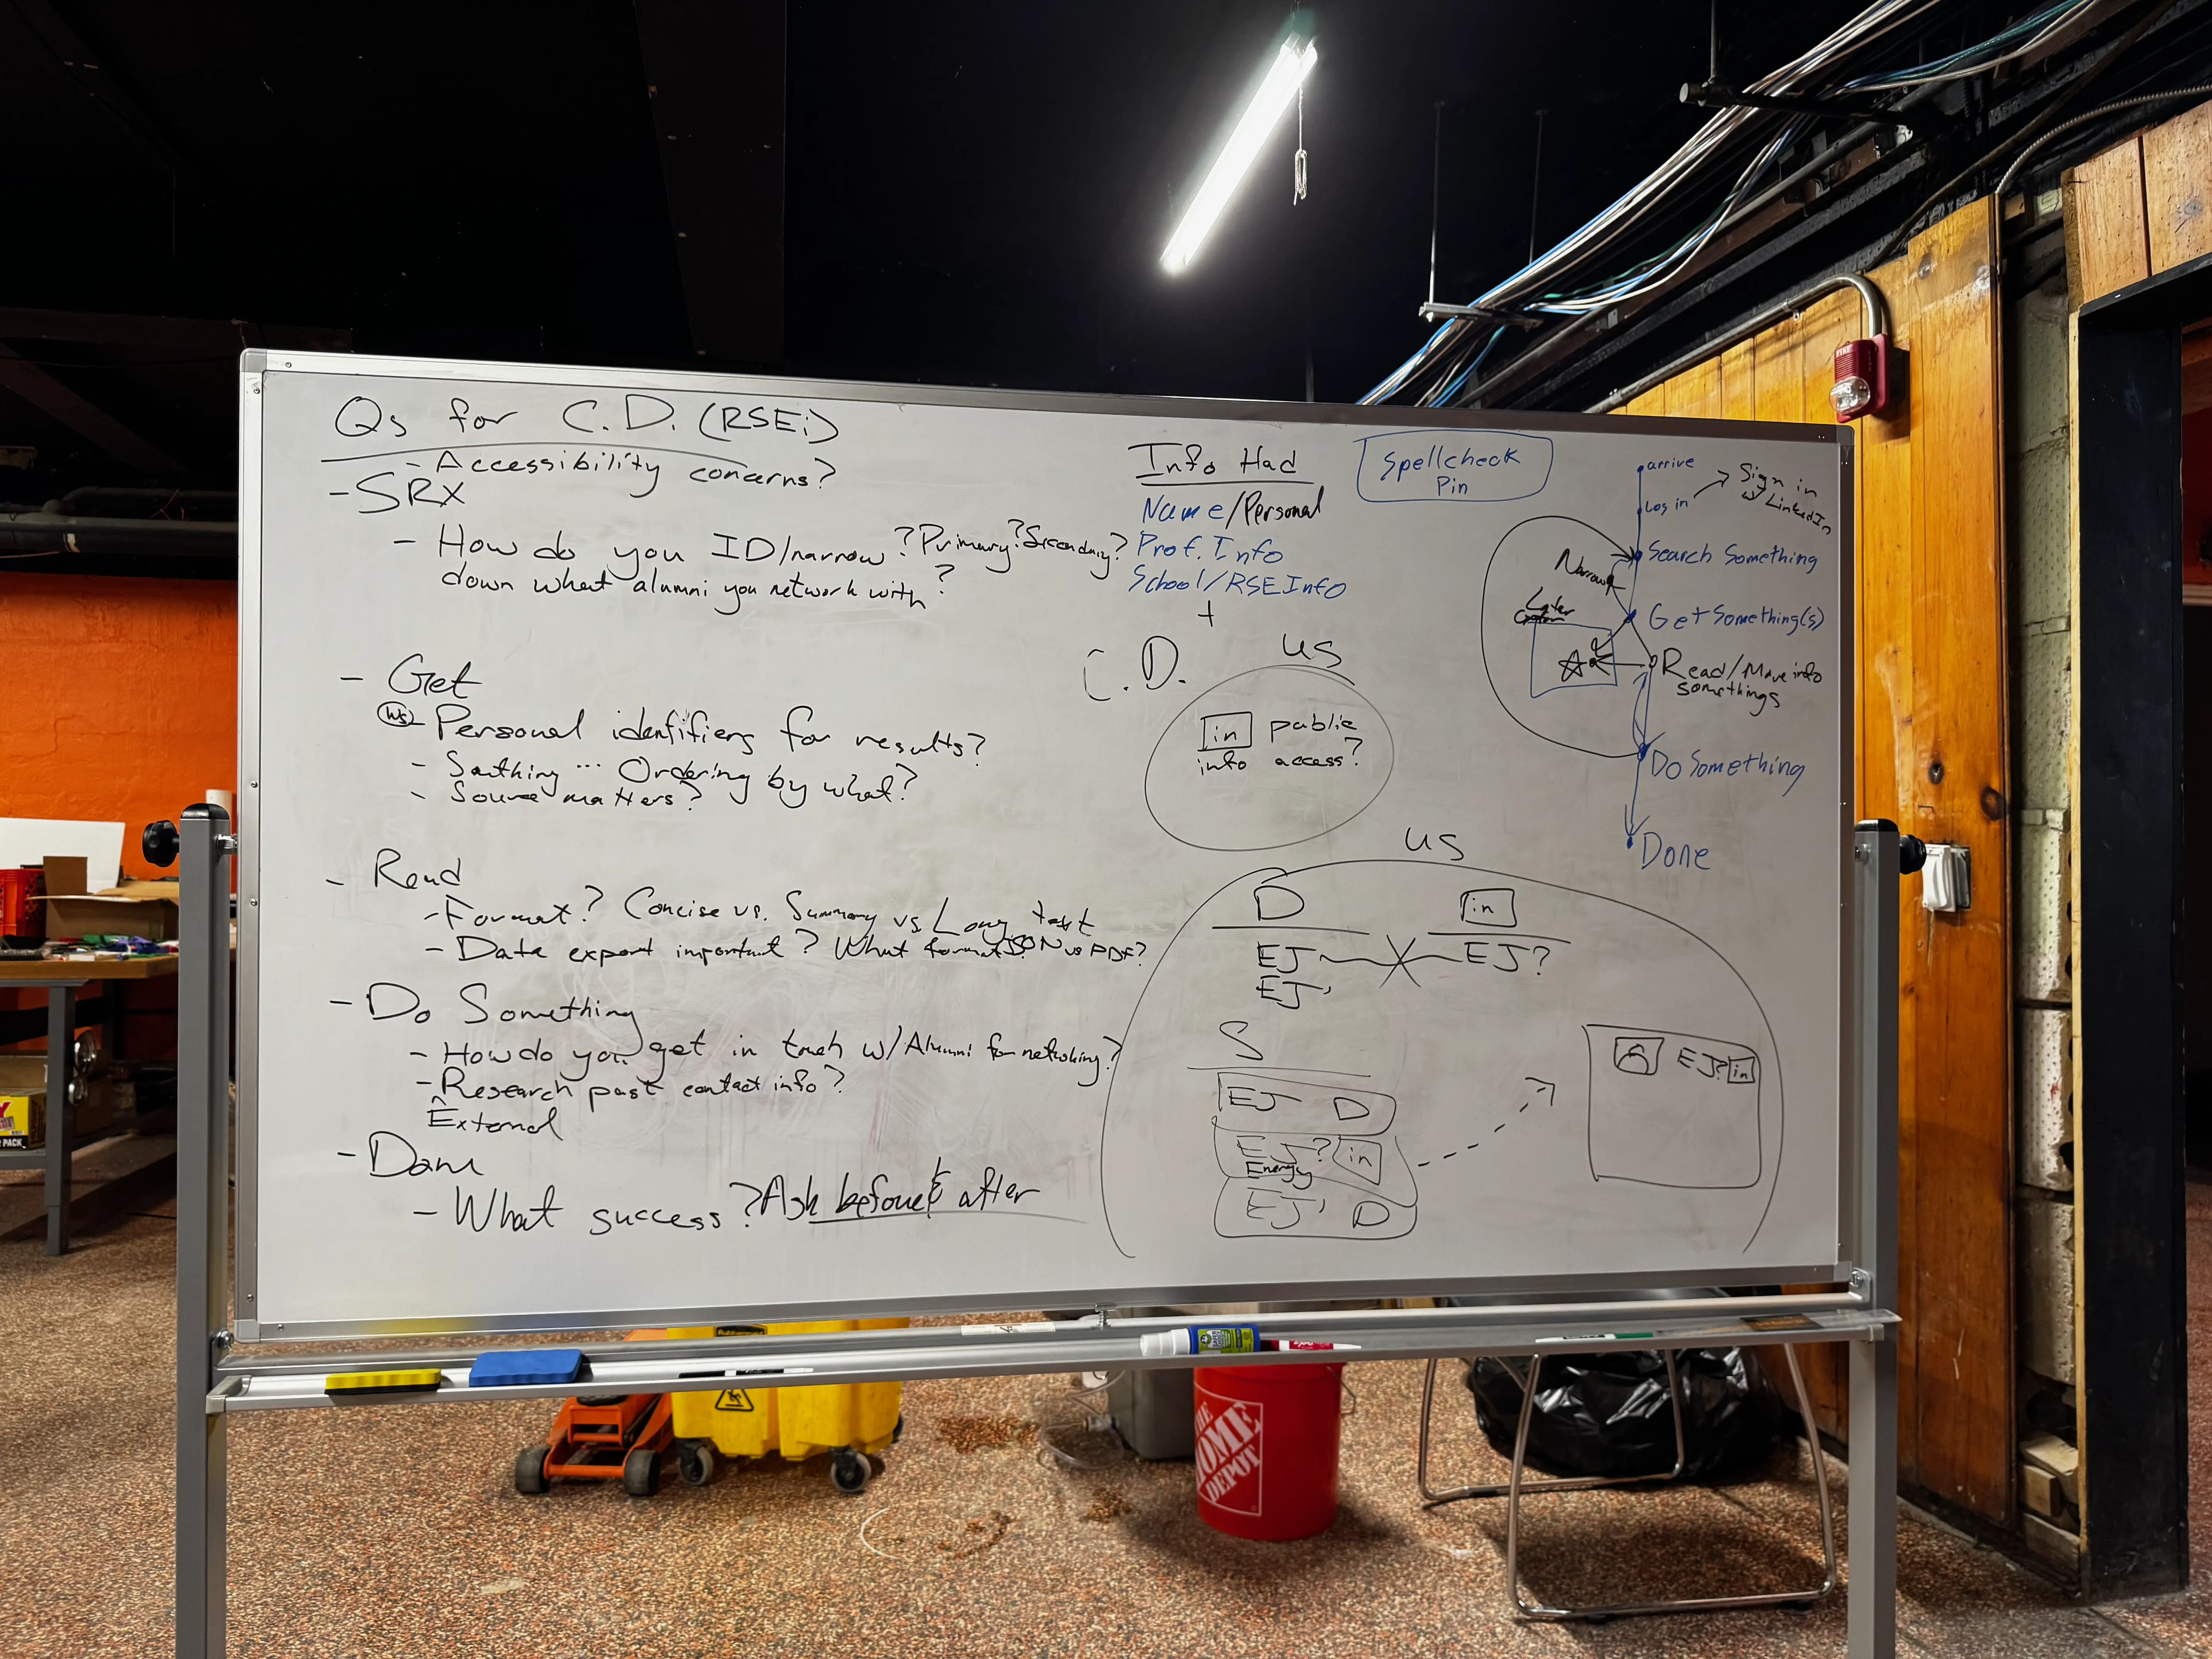 Qs for C.D. (RSEi)
- Accessibility concerns?
- SRX
- How do you ID/narrow ? Primary? Secondary?
down what alumni you network with?
- Get
- Personal identifiers for results?
- Ordering by what?
- Source matters?
- Read
- Format? Concise vs. Summary vs Long text
- Data export important? What format? JSON vs PDF?
- Do Something
- How do you get in touch w/ Alumni for networking?
- Research past contact info?
External
- Done
- What success? Ask before & after
Info Had
Name/Personal
Prof. Info
School/RSE Info
+
C.D.
us
in public
info access?
Spellcheck
Pin
arrive
Log in
Sign in
w/ LinkedIn
Search Something
Narrow
Get Something(s)
Later
Read/Move info
somethings
Do Something
Done
us
D
in
EJ
EJ?
EJ'
S
EJ D
EJ? in
Energy
EJ' D
EJ? in
THE
HOME
DEPOT
FIRE
PACK